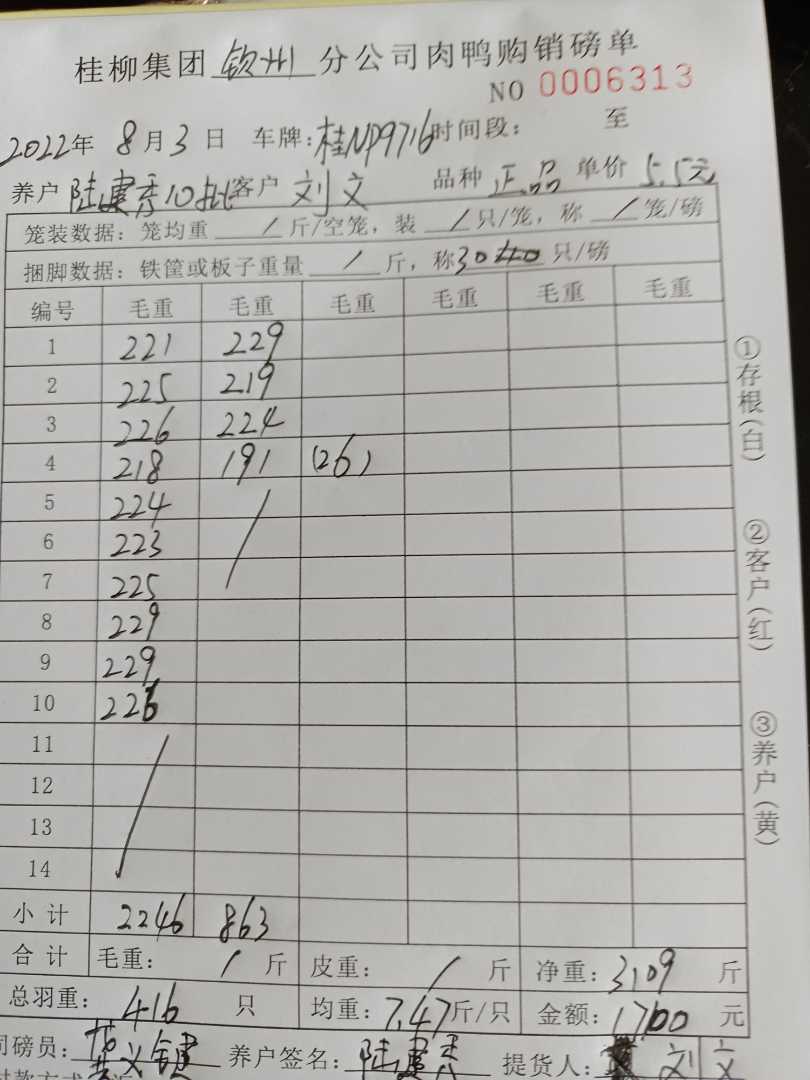 桂柳集团 钦州 分公司肉鸭购销磅单
NO 0006313
2022年 8月3日 车牌:桂NP9716 时间段: 至
养户 陆建秀10批 客户 刘文 品种 正品 单价 5.5元
笼装数据: 笼均重 / 斤/空笼, 装 / 只/笼, 称 / 笼/磅
捆脚数据: 铁筐或板子重量 / 斤, 称30 只/磅
编号 毛重 毛重 毛重 毛重 毛重 毛重
1 221 229
2 225 219
3 226 224
4 218 191 (26)
5 224 /
6 223
7 225
8 229
9 229
10 226
11 /
12
13
14
小计 2246 863
合计 毛重: / 斤 皮重: / 斤 净重: 3109 斤
总羽重: 416 只 均重: 7.47斤/只 金额: 17100 元
司磅员: 养户签名: 陆建秀 提货人: 刘文
①存根(白)
②客户(红)
③养户(黄)